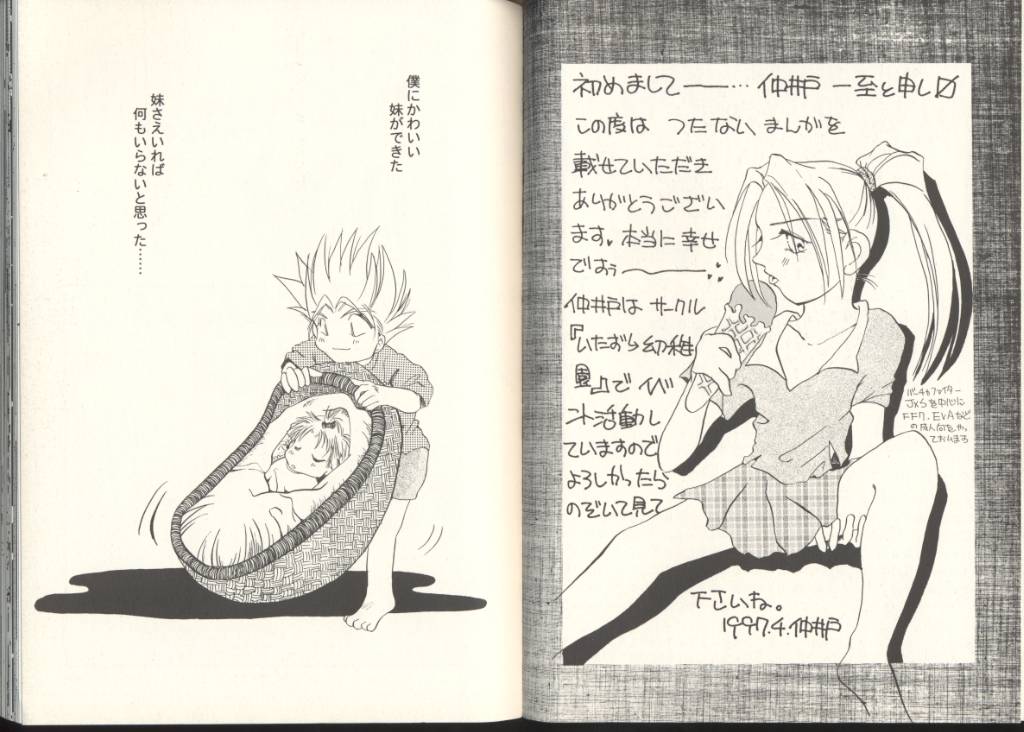 僕にかわいい
妹ができた
妹さえいれば
何もいらないと思った……
初めまして――…仲井戸 一至と申し〼
この度は つたない、まんがを
載せていただき
ありがとうござい
ます。本当に幸せ
ですぅ――
仲井戸は サークル
『いたおら幼稚
園』で イベ
ント活動し
ていますので
よろしかったら
のぞいて見て
下さいね。
1997.4.仲井戸
バーチャファイター
J×Sを中心に
FF7.EVAなど
の成人向をやっ
ておりまする